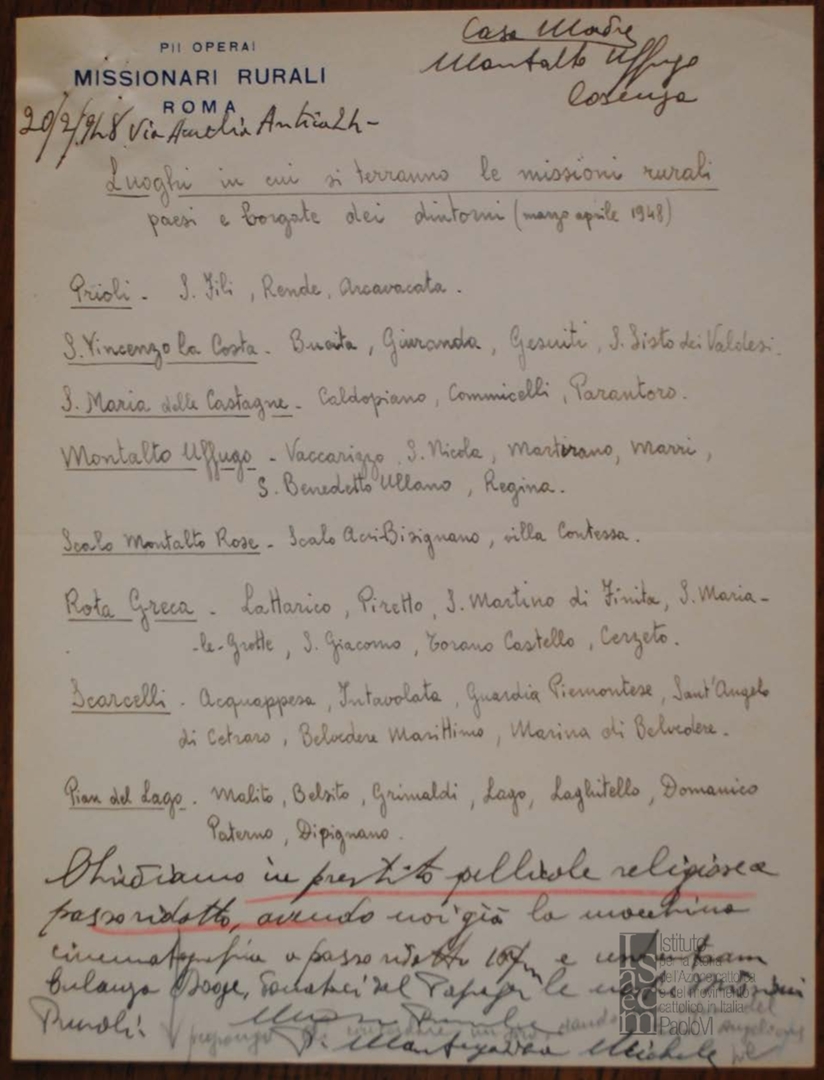 PII OPERAI
MISSIONARI RURALI
ROMA
Casa Madre
Montalto Uffugo
Cosenza
20/2/948 Via Aurelia Antica 24-
Luoghi in cui si terranno le missioni rurali
paesi e borgate dei dintorni (marzo aprile 1948)
Prioli - S. Fili, Rende, Arcavacata.
S. Vincenzo la Costa - Bucita, Giuranda, Gesuiti, S. Sisto dei Valdesi.
S. Maria delle Castagne - Caldopiano, Commicelli, Parantoro.
Montalto Uffugo - Vaccarizzo, S. Nicola, Martirano, Marri,
S. Benedetto Ullano, Regina.
Scalo Montalto Rose - Scalo Acri-Bisignano, villa Contessa.
Rota Greca - Lattarico, Piretto, S. Martino di Finita, S. Maria-
-le-Grotte, S. Giacomo, Torano Castello, Cerzeto.
Scarcelli - Acquappesa, Intavolata, Guardia Piemontese, Sant'Angelo
di Cetraro, Belvedere Marittimo, Marina di Belvedere.
Pian del Lago - Malito, Belsito, Grimaldi, Lago, Laghitello, Domanico
Paterno, Dipignano.
Chiediamo in prestito pellicole religiose a
passo ridotto, avendo noi già la macchina
cinematografica a passo ridotto e
Dodge, del Papa per le nostre Missioni
Rurali.
Michele
Istituto
per la storia
dell'Azione cattolica
e del movimento
cattolico in Italia
Paolo VI